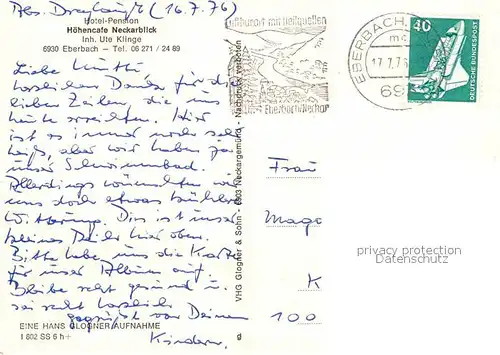 Abs. (16.7.76)
Hotel-Pension
Höhencafe Neckarblick
Inh. Ute Klinge
6930 Eberbach – Tel. 06 271 / 24 89
Liebe Mutti
herzlichen Dank für die
lieben Zeilen, die uns
heute erreichten. Hier
ist es immer noch sehr
heiß, aber wir haben ja
unser Schwimmbad.
Allerdings wünschten wir
uns doch etwas kühlere
Witterung. Dies ist unser
kleines hier oben.
Bitte hebe uns die Karte
für unser Album auf.
Bleibe recht gesund u.
sei recht herzlich
gegrüßt von Deinen
Kindern.
EINE HANS GLOGNER AUFNAHME
1 802 SS 6 h+
VHG Glogner & Sohn - 6903 Neckargemünd - Nachdruck verboten
Luftkurort mit Heilquellen
Eberbach/Neckar
EBERBACH,
17.7.76
69
40
DEUTSCHE BUNDESPOST
Frau
Mag
K
100
privacy protection
Datenschutz